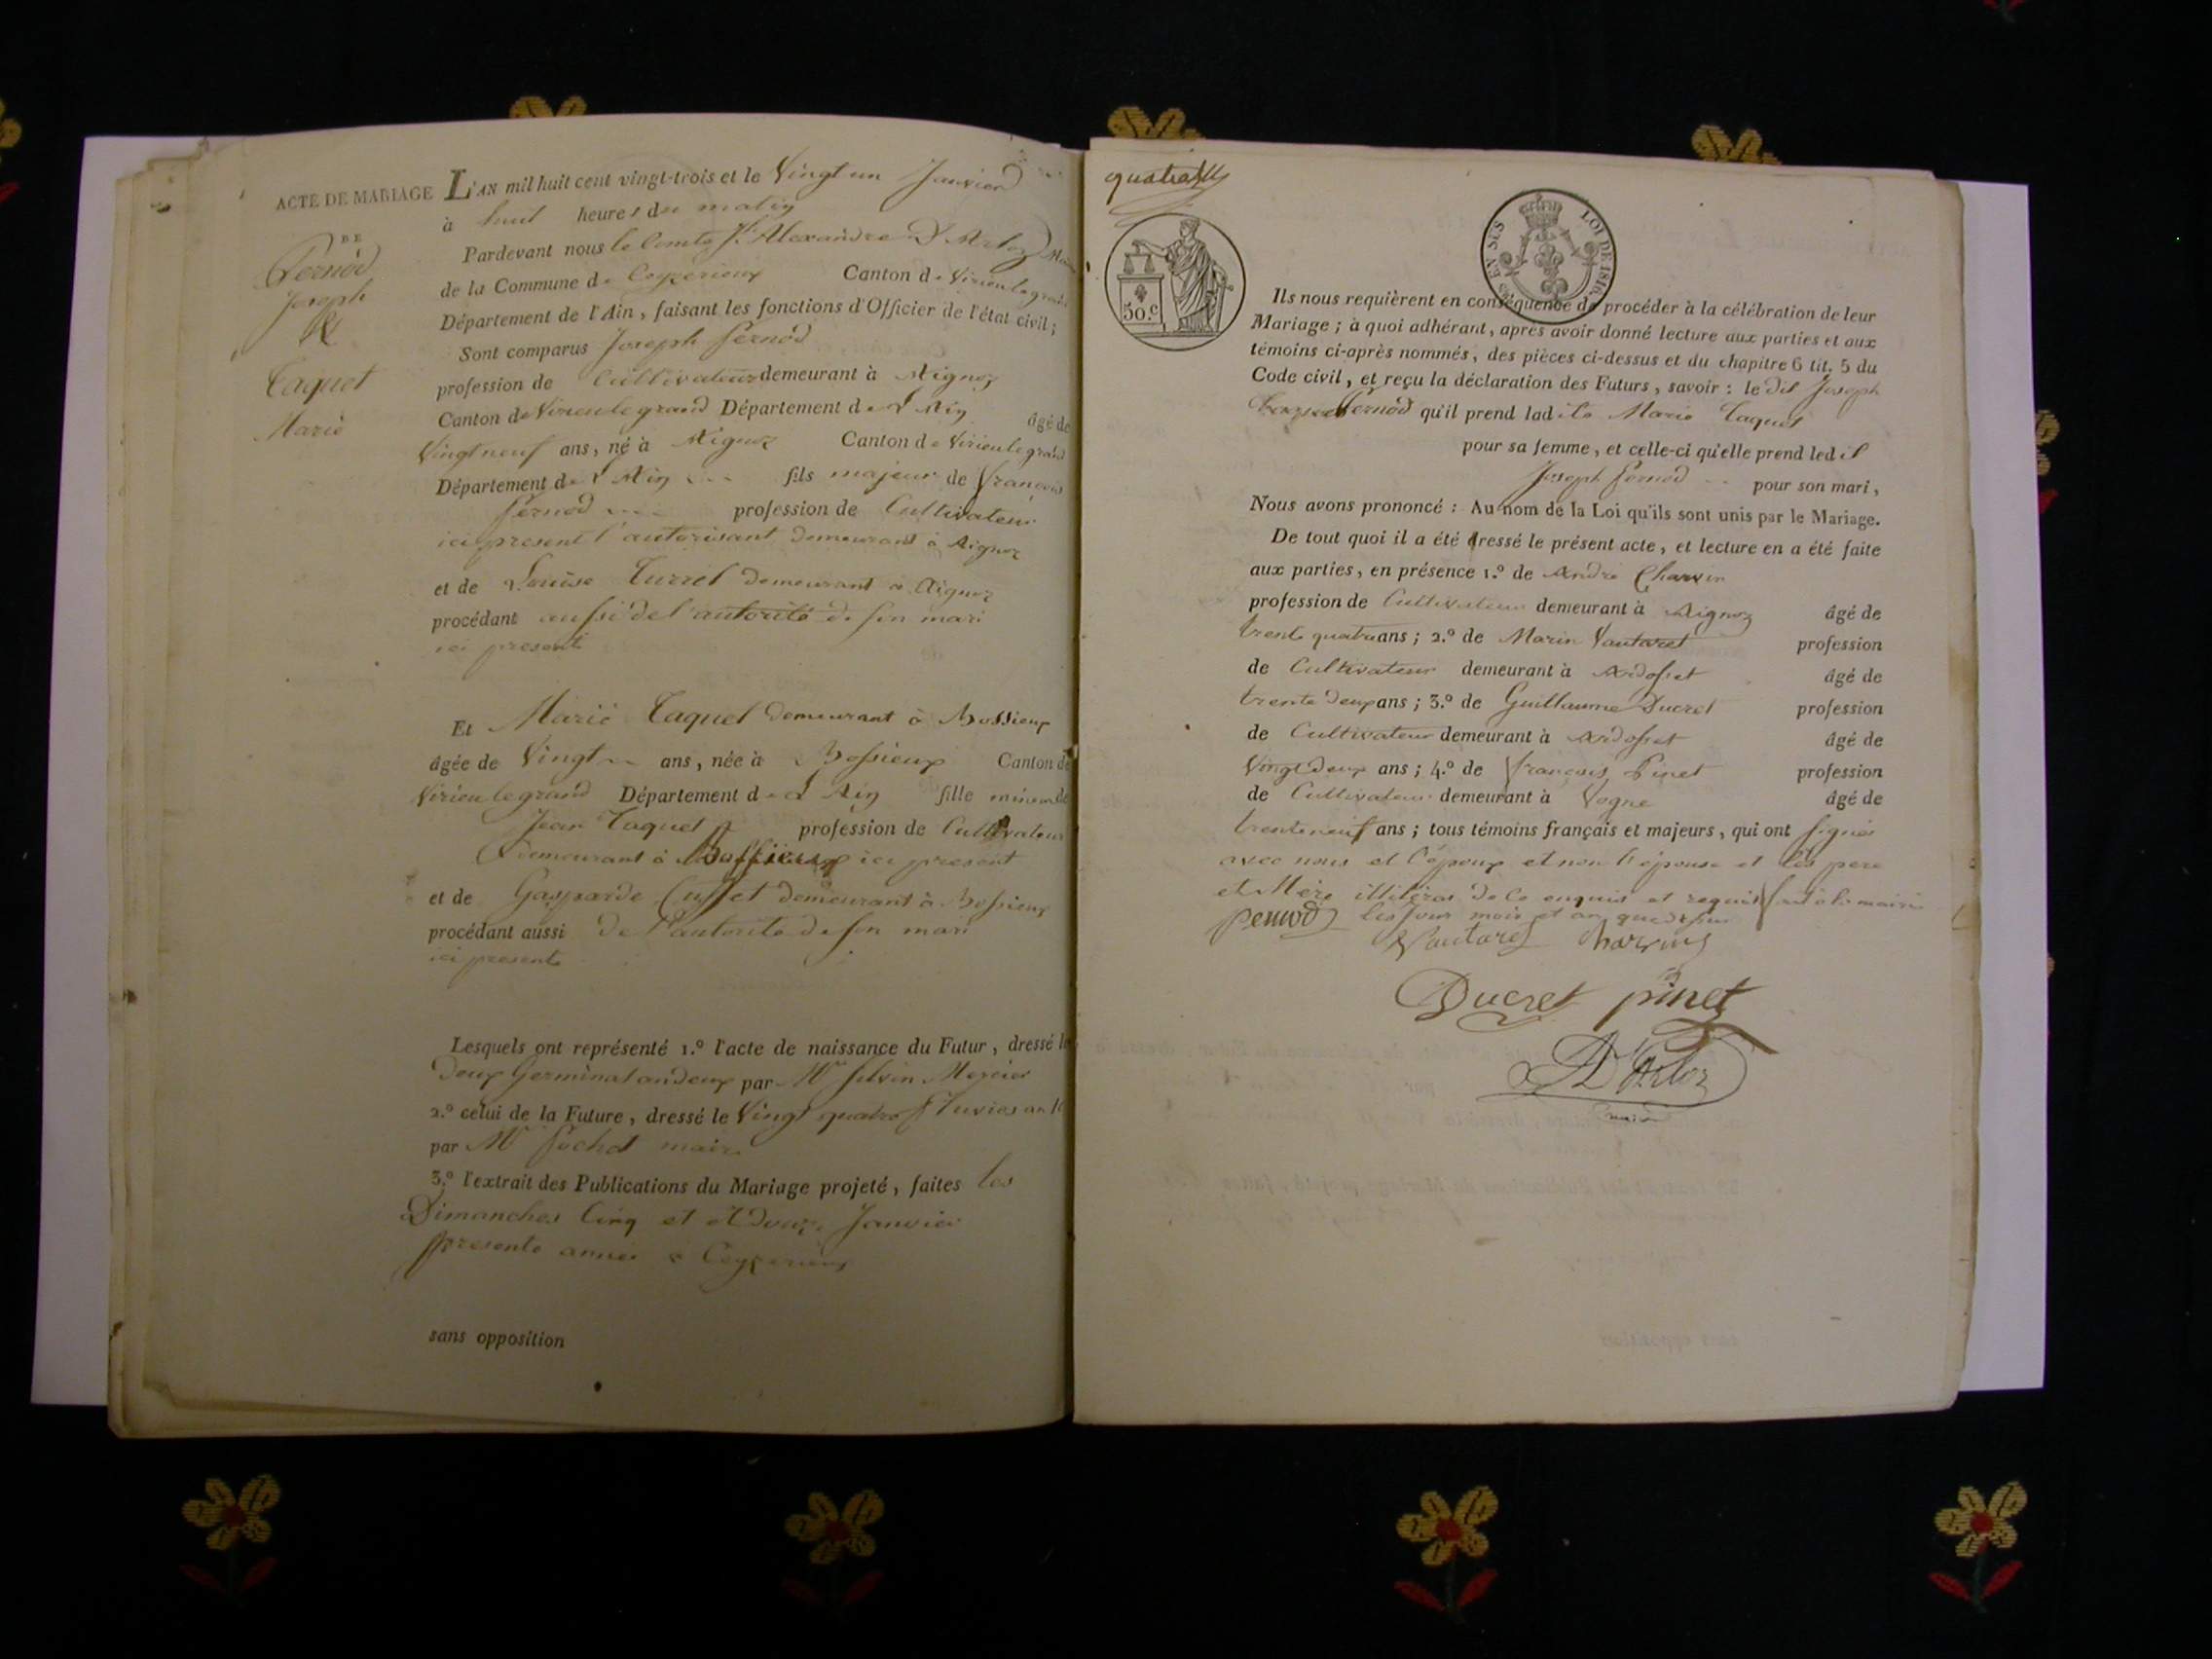 ACTE DE MARIAGE
DE
Pernod
Joseph
&
Taquet
Marie
L'AN mil huit cent vingt-trois et le Vingt un Janvier
à huit heures du matin
Pardevant nous le Comte Alexandre D'Arloz Maire
de la Commune de Ceyzerieux Canton de Virieu le grand
Département de l'Ain, faisant les fonctions d'Officier de l'état civil;
Sont comparus Joseph Pernod
profession de Cultivateur demeurant à Aignoz
Canton de Virieu le grand Département de L'Ain âgé de
Vingt neuf ans, né à Aignoz Canton de Virieu le grand
Département de L'Ain fils majeur de François
Pernod profession de Cultivateur
ici present l'autorisant demeurant à Aignoz
et de Louise Turrel demeurant à Aignoz
procédant aussi de l'autorité de son mari
ici presente
Et Marie Taquet demeurant à Bossieux
âgée de Vingt ans, née à Bossieux Canton de
Virieu le grand Département de L'Ain fille mineure de
Jean Taquet profession de Cultivateur
demeurant à Bossieux ici present
et de Gasparde Cusset demeurant à Bossieux
procédant aussi de l'autorité de son mari
ici presente
Lesquels ont représenté 1.º l'acte de naissance du Futur, dressé le
deux Germinal an deux par Mr Mercier
2.º celui de la Future, dressé le Vingt quatre Pluviose an
par Mr Pochet maire
3.º l'extrait des Publications du Mariage projeté, faites les
Dimanches Cinq et et douze Janvier
presente année à Ceyzerieux
sans opposition
quatre
50.c
EN SUS
LOI DE 1816.
Ils nous requièrent en conséquence de procéder à la célébration de leur
Mariage; à quoi adhérant, après avoir donné lecture aux parties et aux
témoins ci-après nommés, des pièces ci-dessus et du chapitre 6 tit. 5 du
Code civil, et reçu la déclaration des Futurs, savoir: le dit Joseph
Pernod qu'il prend ladite Marie Taquet
pour sa femme, et celle-ci qu'elle prend ledit
Joseph Pernod pour son mari,
Nous avons prononcé: Au nom de la Loi qu'ils sont unis par le Mariage.
De tout quoi il a été dressé le présent acte, et lecture en a été faite
aux parties, en présence 1.º de André Charvin
profession de Cultivateur demeurant à Aignoz âgé de
trente quatre ans; 2.º de Marin Vautaret profession
de Cultivateur demeurant à Ardosset âgé de
trente deux ans; 3.º de Guillaume Ducret profession
de Cultivateur demeurant à Ardosset âgé de
Vingt deux ans; 4.º de François Pinet profession
de Cultivateur demeurant à Vogne âgé de
trente neuf ans; tous témoins français et majeurs, qui ont signés
avec nous et l'époux et non l'épouse et les pere
et Mère illitéres de ce enquis et requis fait à la mairie
les jour mois et an que dessus
pernod
Vautaret Charvin
Ducret pinet
D'Arloz
maire